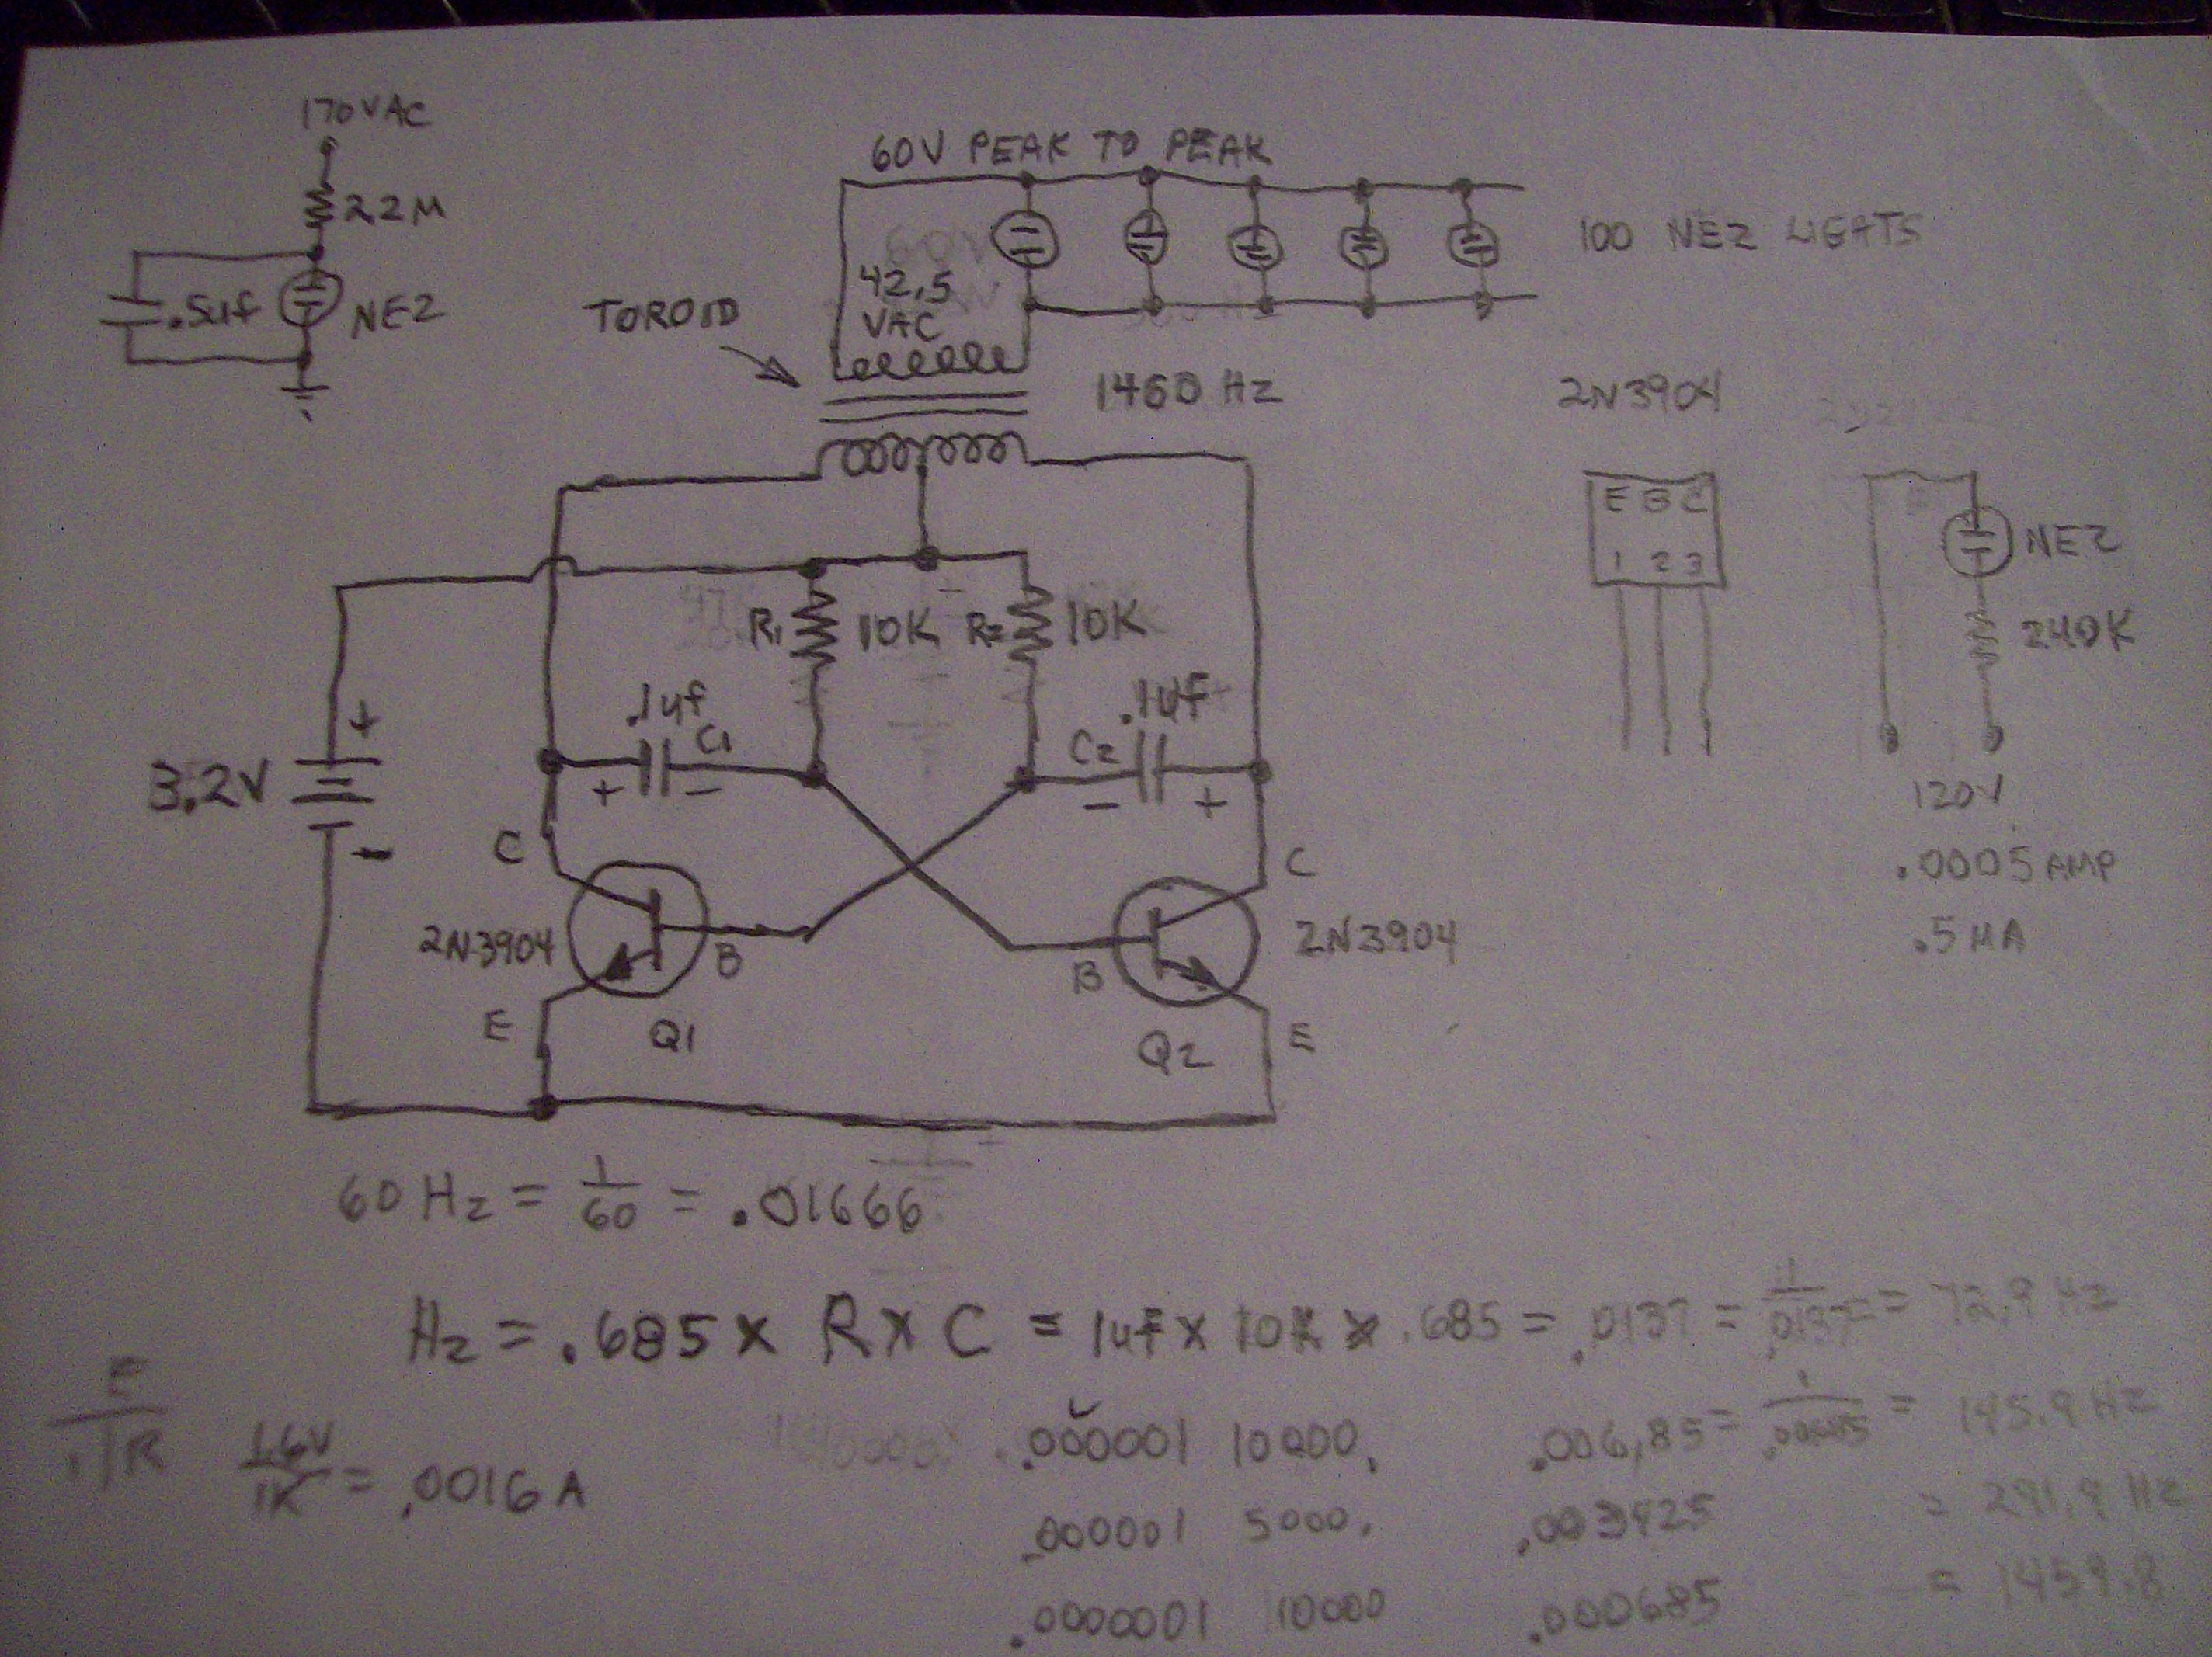 170VAC
22M
.5uf
NE2
60V PEAK TO PEAK
42.5
VAC
100 NE2 LIGHTS
TOROID
1460 Hz
2N3904
E B C
1 2 3
NE2
240K
120V
.0005 AMP
.5MA
R1 10K R2 10K
.1uf
C1
+ -
.1uf
C2
- +
+
3.2V
-
C
2N3904
B
E
Q1
C
2N3904
B
E
Q2
60 Hz = 1/60 = .01666
Hz = .685 x R x C = 1uf x 10K x .685 = .0137 = 1/.0137 = 72.9 Hz
.000001 10000. .006,85 = 1/.00685 = 145.9 Hz
.000001 5000. .003425 = 291.9 Hz
.0000001 10000 .000685 = 1459.8
E
I R
1.6V/1K = .0016A